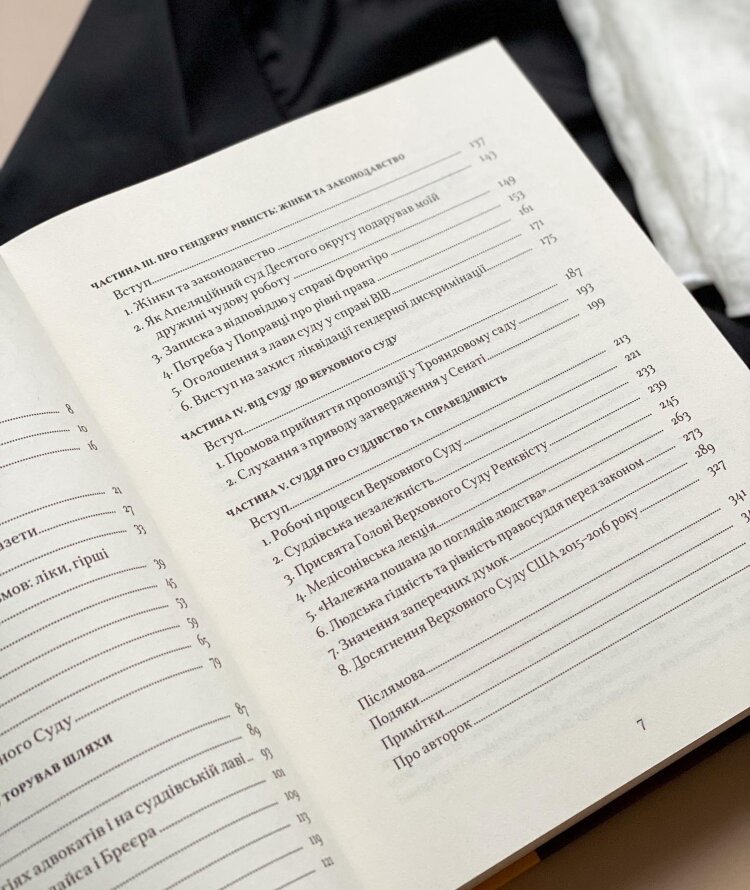 8
10
16
21
азети 27
33
мов: ліки, гірші
39
45
53
59
65
ного Суду 79
ТОРУВАВ ШЛЯХИ
87
89
іях адвокатів і на суддівській лаві 93
дайса і Брєєра 101
109
113
119
121
ЧАСТИНА III. ПРО ГЕНДЕРНУ РІВНІСТЬ: ЖІНКИ ТА ЗАКОНОДАВСТВО
Вступ 137
1. Жінки та законодавство 143
2. Як Апеляційний суд Десятого округу подарував моїй
дружині чудову роботу 149
3. Записка з відповіддю у справі Фронтіро 153
4. Потреба у Поправці про рівні права 161
5. Оголошення з лави суду у справі ВІВ 171
6. Виступ на захист ліквідації гендерної дискримінації 175
ЧАСТИНА IV. ВІД СУДУ ДО ВЕРХОВНОГО СУДУ
Вступ 187
1. Промова прийняття пропозиції у Трояндовому саду 193
2. Слухання з приводу затвердження у Сенаті 199
ЧАСТИНА V. СУДДЯ ПРО СУДДІВСТВО ТА СПРАВЕДЛИВІСТЬ
Вступ 213
1. Робочі процеси Верховного Суду 221
2. Суддівська незалежність 233
3. Присвята Голові Верховного Суду Ренквісту 239
4. Медісонівська лекція 245
5. «Належна пошана до поглядів людства» 263
6. Людська гідність та рівність правосуддя перед законом 273
7. Значення заперечних думок 289
8. Досягнення Верховного Суду США 2015–2016 року 327
Післямова 341
Подяки
Примітки
Про авторок
7